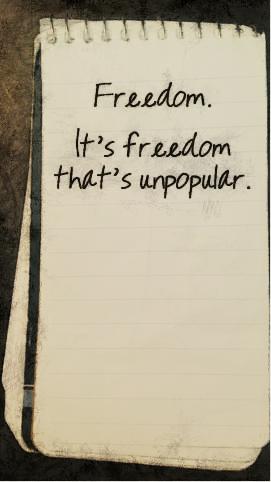 Freedom.
It's freedom
that's unpopular.